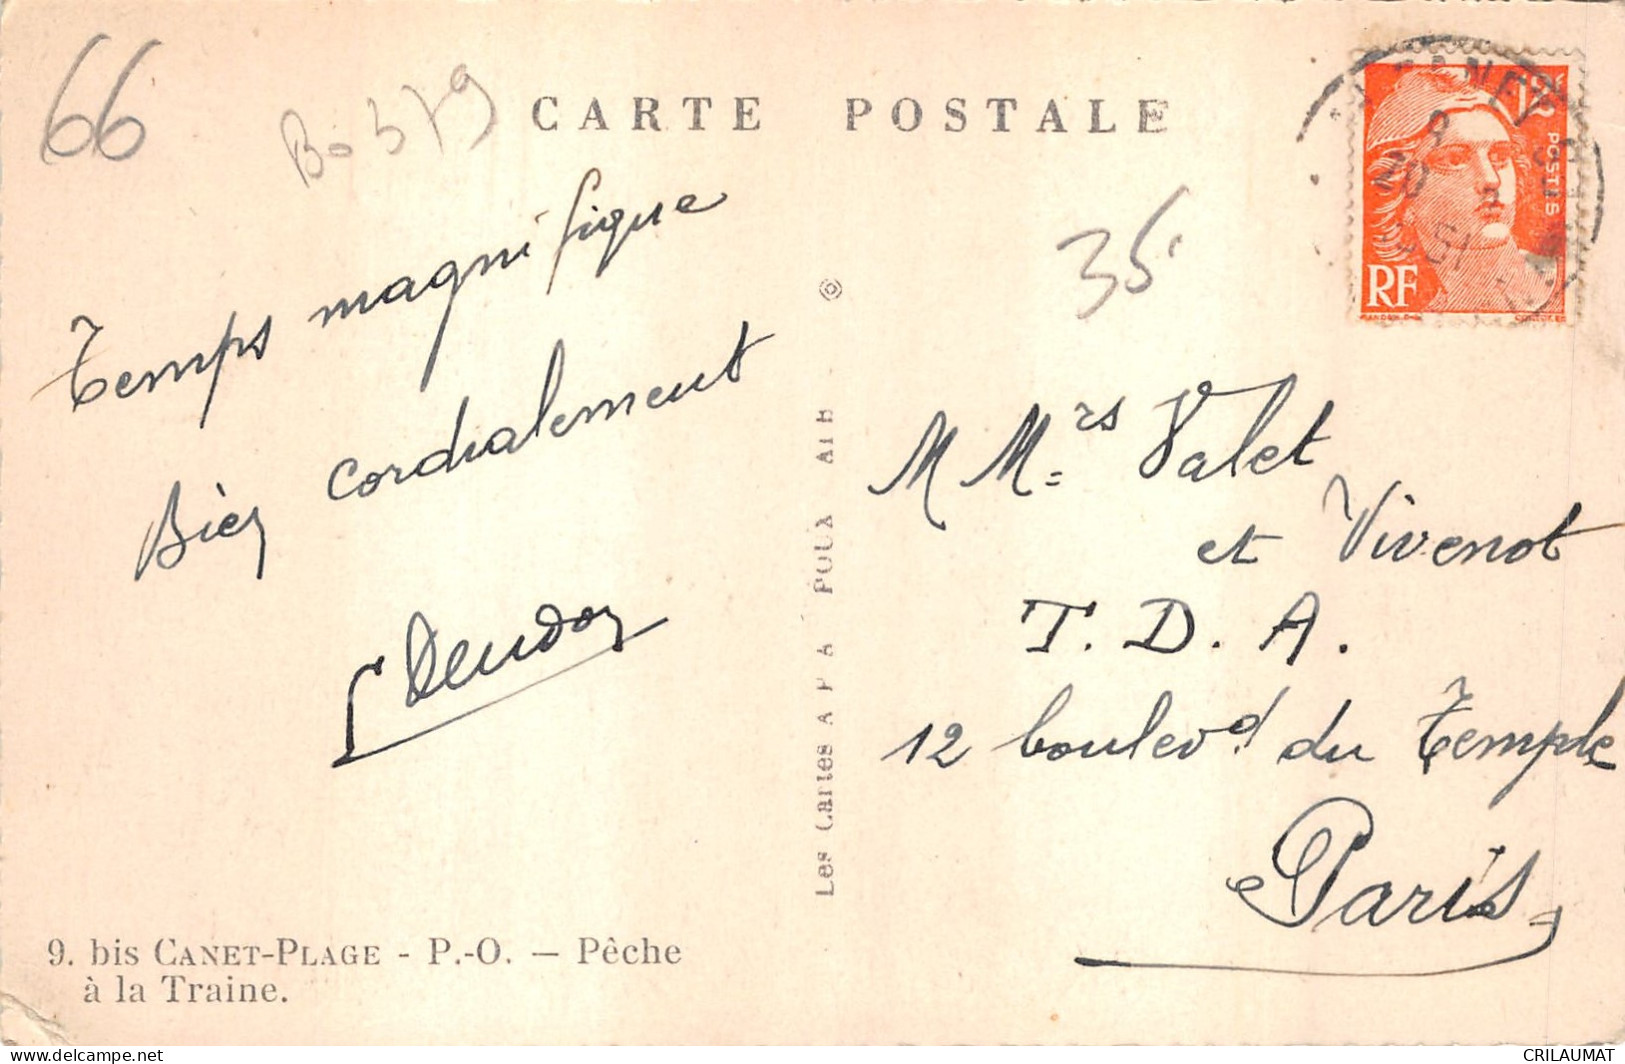 66
Bo 379
CARTE POSTALE
POSTES
RF
35
Temps magnifique
Bien cordialement
M Mrs Valet
et Vivenot
T. D. A.
12 boulevd. du Temple
Paris
Les Cartes A P A POUX ALB
9. bis CANET-PLAGE - P.-O. — Pêche
à la Traine.
www.delcampe.net
CRILAUMAT